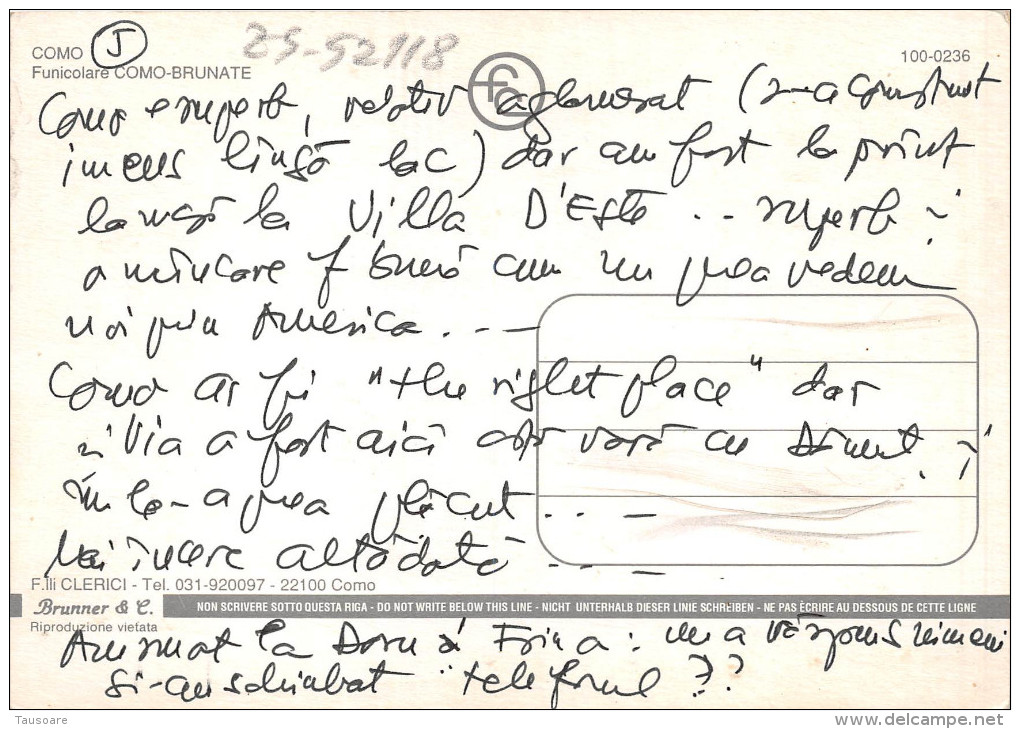 COMO 5 25-52118 100-0236
Funicolare COMO-BRUNATE
Como e superb, relativ aglomerat (s-a construit
imens lîngă lac) dar am fost la prînz
la Villa D'Este .. superb și
o mîncare f bună cum nu prea vedem
noi prin America...—
Como ar fi "the right place" dar
și Via a fost aici astă vară cu
nu le-a prea plăcut ... —
Mai încerc altădată ... —
F.lli CLERICI - Tel. 031-920097 - 22100 Como
Brunner & C. NON SCRIVERE SOTTO QUESTA RIGA - DO NOT WRITE BELOW THIS LINE - NICHT UNTERHALB DIESER LINIE SCHREIBEN - NE PAS ÉCRIRE AU DESSOUS DE CETTE LIGNE
Riproduzione vietata
Am sunat la și : nu a răspuns nimeni
Și-au schimbat telefonul ??
Tausoare www.delcampe.net